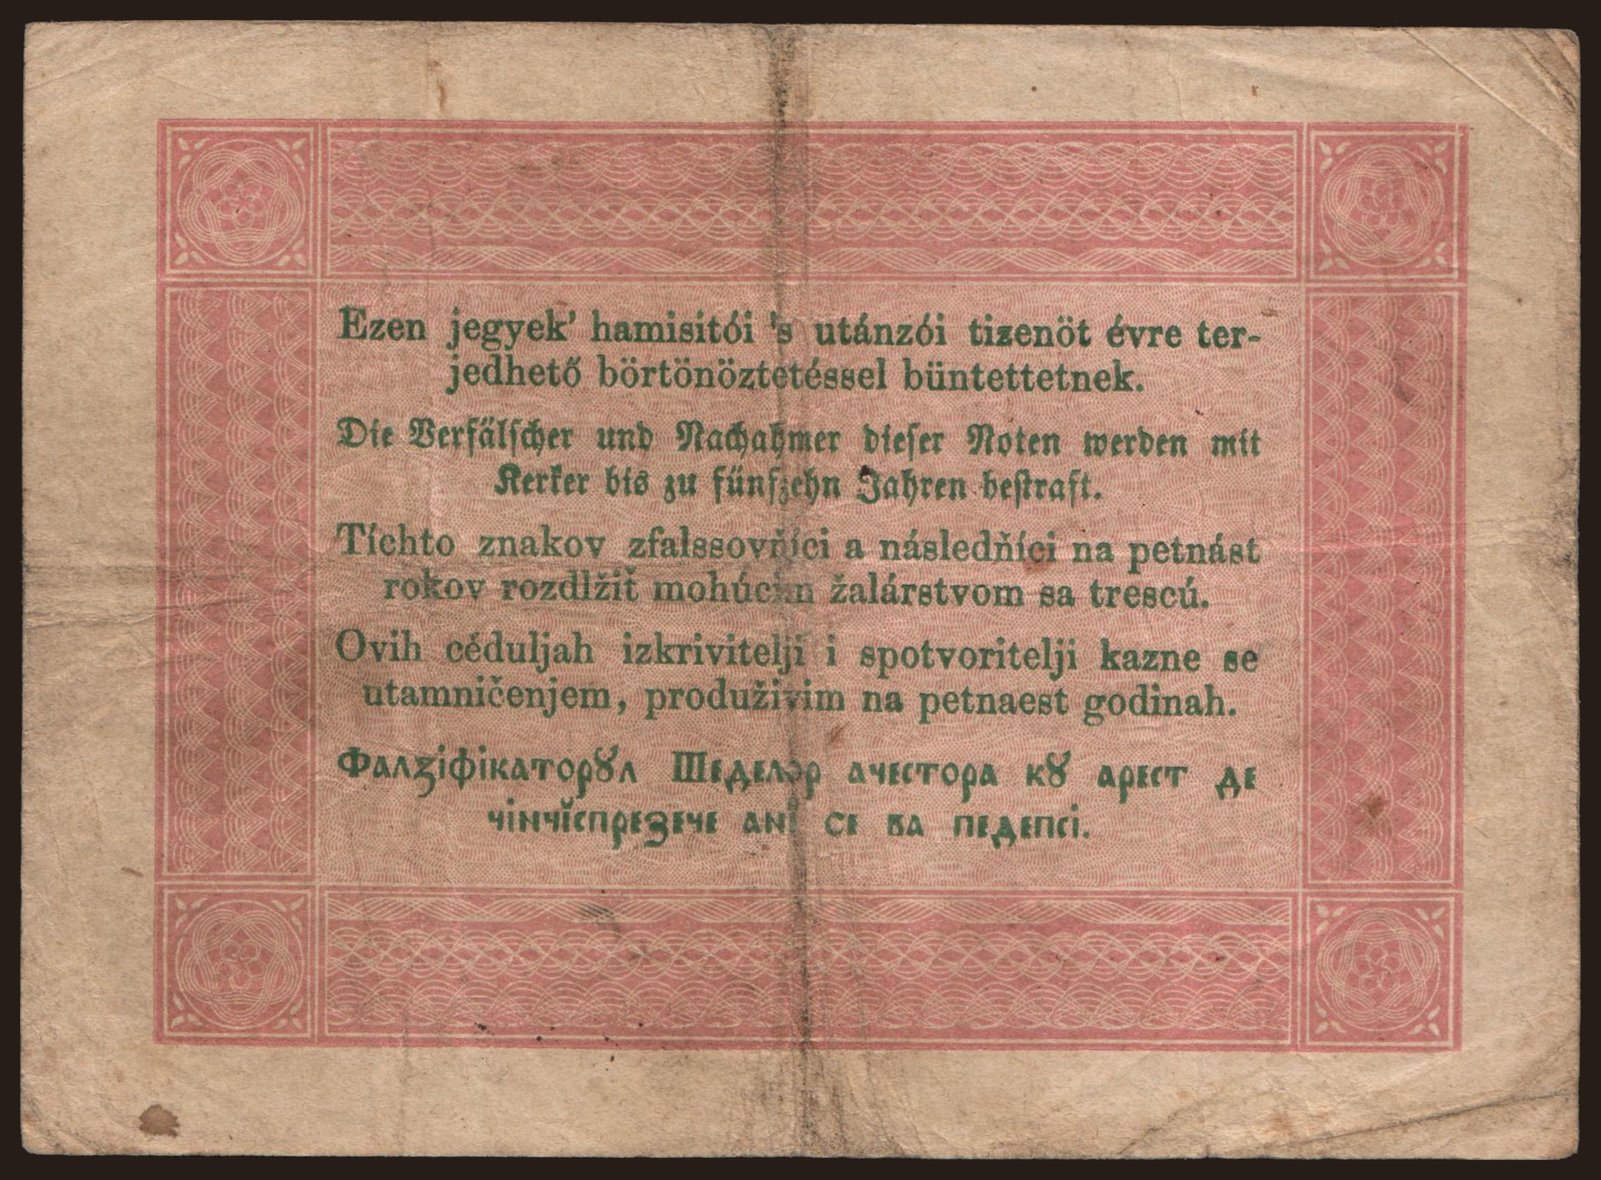 Ezen jegyek' hamisítói 's utánzói tizenöt évre ter-
jedhető börtönöztetéssel büntettetnek.
Die Verfälscher und Nachahmer dieser Noten werden mit
Kerker bis zu fünfzehn Jahren bestraft.
Tíchto znakov zfalssovňíci a následňíci na petnást
rokov rozdlžiť mohúcim žalárstvom sa trescú.
Ovih céduljah izkrivitelji i spotvoritelji kazne se
utamničenjem, produživim na petnaest godinah.
Фалзіфікаторꙋл Шеделор ачестора кꙋ арест де
чінчĭспрезече ані се ва педепсі.